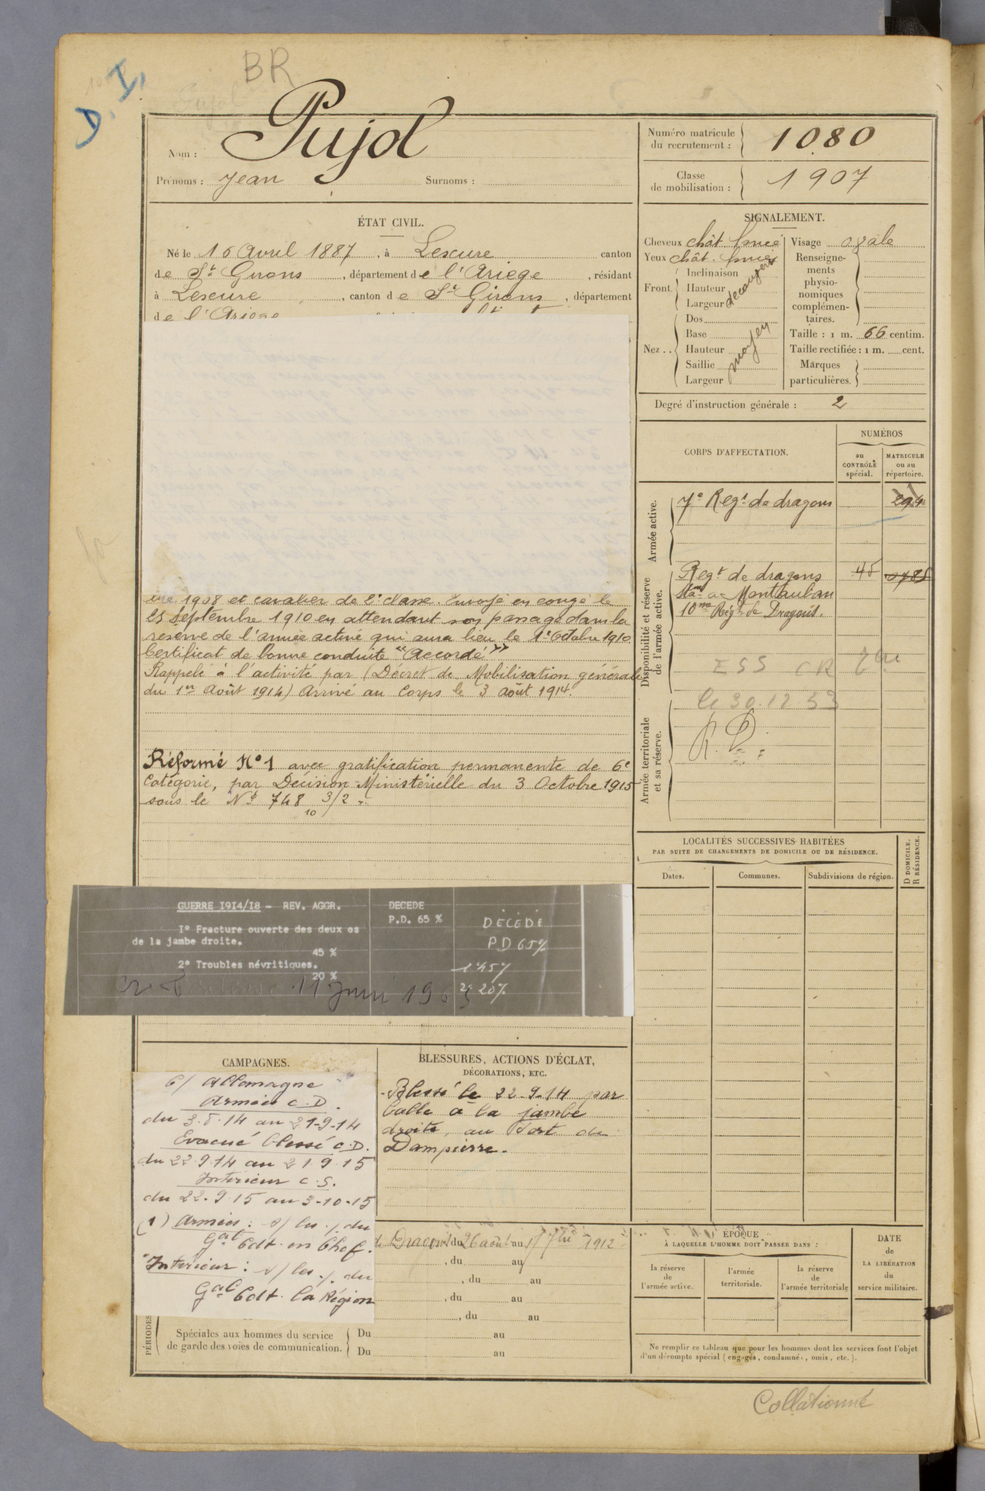 BR
D. I.
Nom : Pujol
Prénoms : Jean Surnoms :
Numéro matricule du recrutement : 1080
Classe de mobilisation : 1907
ÉTAT CIVIL.
Né le 16 Avril 1887, à Lescure canton
de St Girons, département de l'Ariège, résidant
à Lescure, canton de St Girons, département
de l'Ariège
SIGNALEMENT.
Cheveux chât. foncé
Yeux chât. foncé
Front
Inclinaison
Hauteur
Largeur
découvert
Nez ..
Dos
Base
Hauteur
Saillie
Largeur
moyen
Visage ovale
Renseigne-
ments
physio-
nomiques
complémen-
taires.
Taille : 1 m. 66 centim.
Taille rectifiée : 1 m. cent.
Marques
particulières.
Degré d'instruction générale : 2
CORPS D'AFFECTATION.
NUMÉROS
au CONTRÔLE spécial.
MATRICULE ou au répertoire.
Armée active.
7e Regt de dragons
Disponibilité et réserve de l'armée active.
Regt de dragons 48
Montauban
10me Regt de Dragons.
ESS CR
le 30.12.53
R. D.
Armée territoriale et sa réserve.
1908 et cavalier de 2e classe. Envoyé en congé le
25 Septembre 1910 en attendant son passage dans la
réserve de l'armée active qui aura lieu le 1er Octobre 1910
Certificat de bonne conduite "Accordé"
Rappelé à l'activité par (Décret de Mobilisation générale
du 1er Août 1914) Arrivé au Corps le 3 août 1914.
Réformé No 1 avec gratification permanente de 6e
Catégorie, par Décision Ministérielle du 3 Octobre 1915
sous le No 748 3/2
10
LOCALITÉS SUCCESSIVES HABITÉES
PAR SUITE DE CHANGEMENTS DE DOMICILE OU DE RÉSIDENCE.
Dates. Communes. Subdivisions de région.
D DOMICILE.
R RÉSIDENCE.
GUERRE 1914/18 - REV. AGGR.
1° Fracture ouverte des deux os
de la jambe droite.
45 %
2° Troubles névritiques.
20 %
DECEDE
P.D. 65 %
DÉCÉDÉ
PD 65%
1° 45%
2° 20%
CAMPAGNES.
C/ Allemagne
Armées C.D.
du 3.8.14 au 21-9-14
Evacué blessé C.D.
du 22.9.14 au 21.9.15
Intérieur C.S.
du 22.9.15 au 3-10-15
(1) Armées : s/ les . du
Gal Cdt. en Chef.
Intérieur : s/ les . du
Gal Cdt. la Région
BLESSURES, ACTIONS D'ÉCLAT,
DÉCORATIONS, ETC.
Blessé le 22-9-14 par
balle à la jambe
droite, au Fort de
Dampierre.
du 26 août au 1912
, du au
, du au
, du au
, du au
PÉRIODES
Spéciales aux hommes du service
de garde des voies de communication.
Du au
Du au
ÉPOQUE
À LAQUELLE L'HOMME DOIT PASSER DANS :
la réserve de l'armée active.
l'armée territoriale.
la réserve de l'armée territoriale
DATE
de
LA LIBÉRATION
du
service militaire.
Ne remplir ce tableau que pour les hommes dont les services font l'objet
d'un décompte spécial (engagés, condamnés, omis, etc.).
Collationné